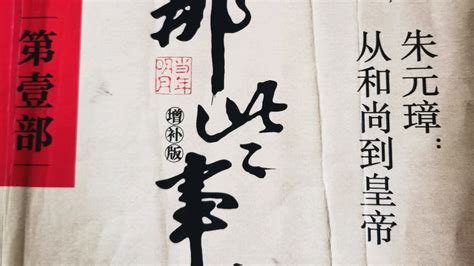 第壹部
那些事
当年
明月
增补版
朱元璋：
从和尚到皇帝